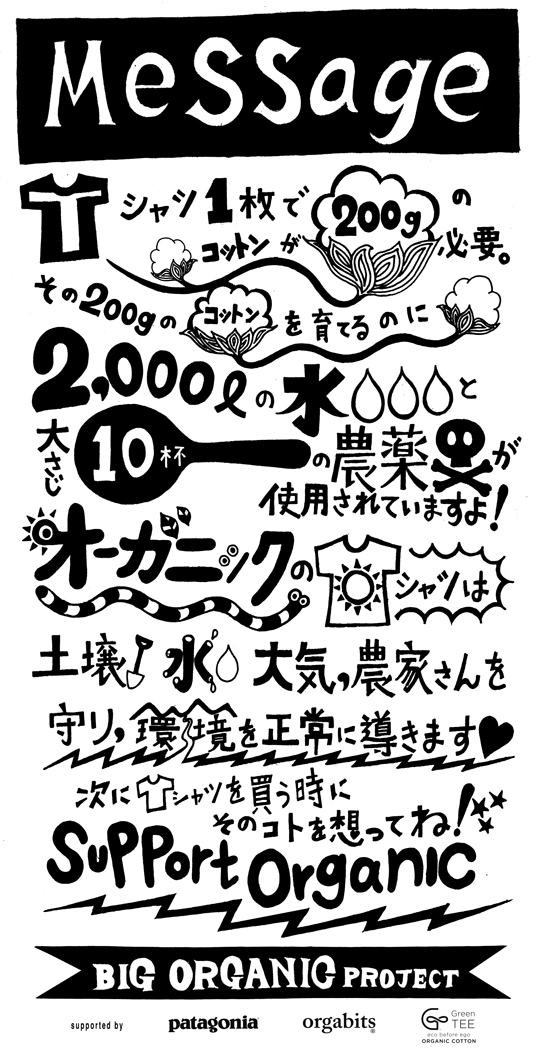 Message
Tシャツ1枚で200gの
コットンが必要。
その200gのコットンを育てるのに
2,000ℓの水と
大さじ10杯の農薬が
使用されていますよ!
オーガニックのシャツは
土壌 水 大気,農家さんを
守り,環境を正常に導きます
次にTシャツを買う時に
そのコトを想ってね!
Support Organic
BIG ORGANIC PROJECT
supported by patagonia orgabits Green TEE
eco before ego
ORGANIC COTTON